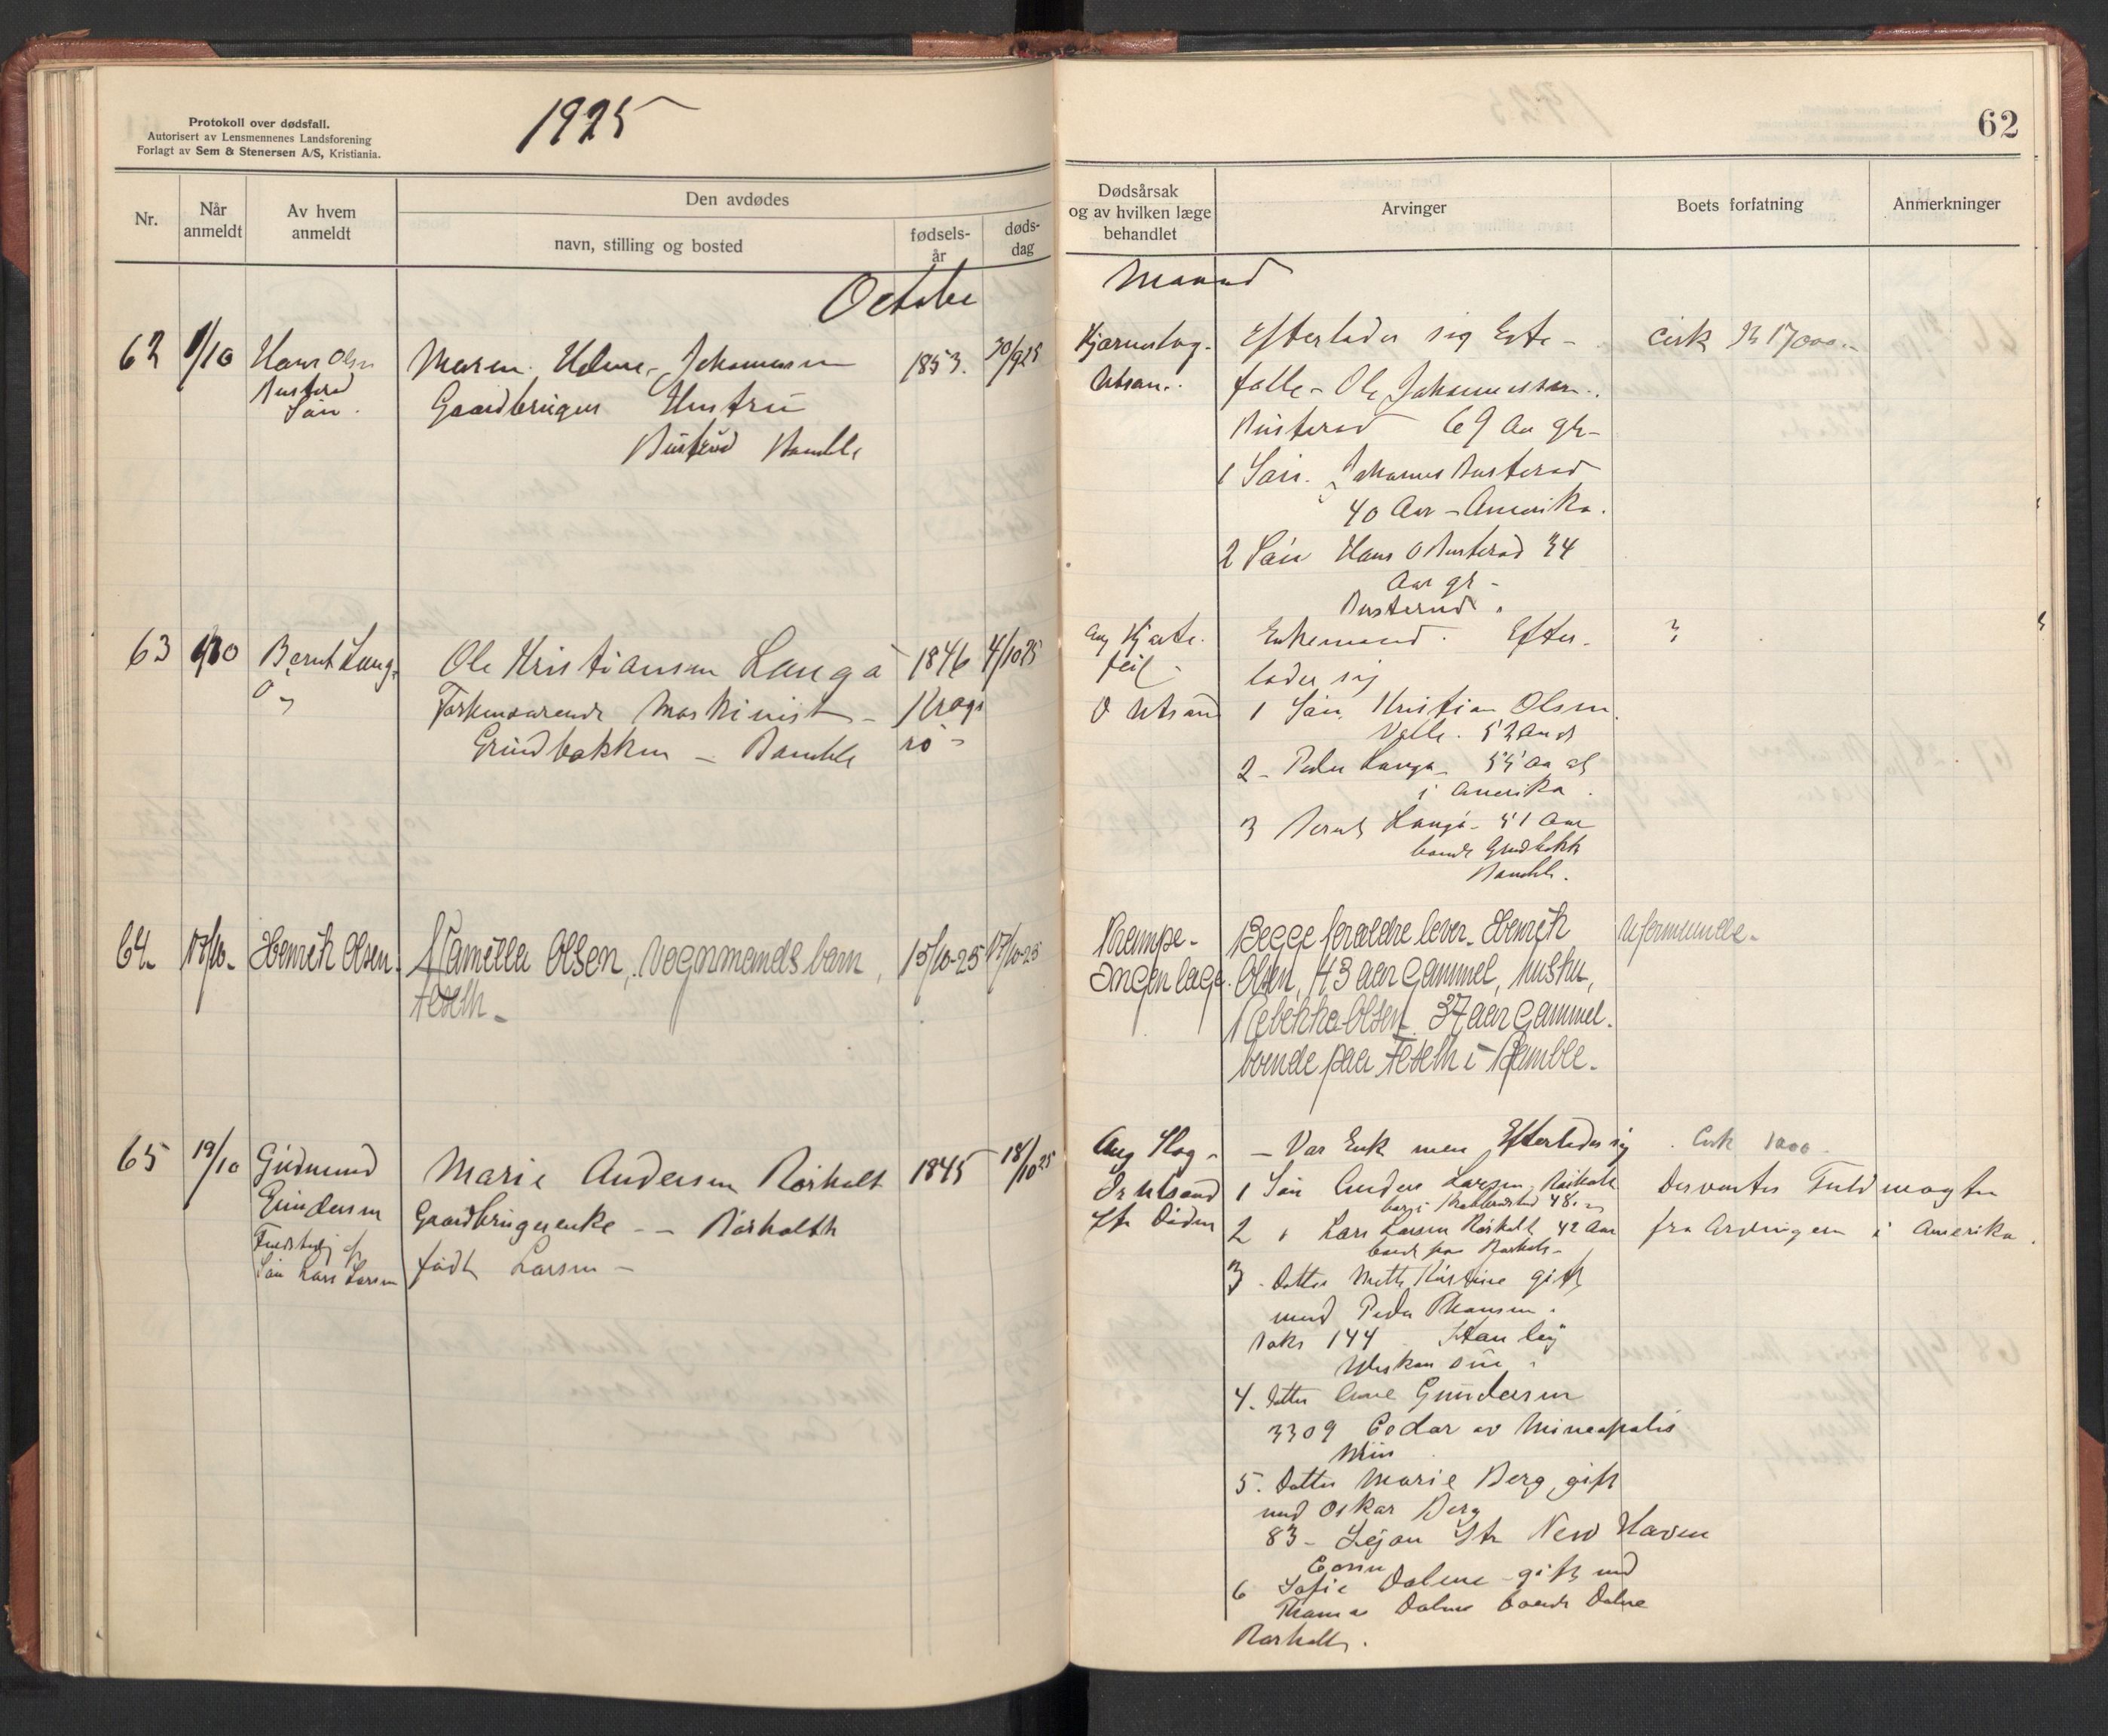 Protokoll over dødsfall.
Autorisert av Lensmennenes Landsforening
Forlagt av Sem & Stenersen A/S, Kristiania.
1925
Nr.
Når anmeldt
Av hvem anmeldt
Den avdødes
navn, stilling og bosted
fødsels-år
døds-dag
October
62
1/10
Hans Olsen
Busterud
Søn.
Maren Helene Johannesen
Gaardbrugers Hustru
Busterud Bamble
1853.
30/9 25
63
Bernt Lang-
ø
Ole Kristiansen Langø
Forhenværende Maskinist -
Grindbakken - Bamble
1846
Krage
rø -
4/10 25
64.
17/10-
Henrik Olsen.
Kamilla Olsen, Vognmands barn,
15/10-25
17/10-25
65
19/10
Gudmund
Gundersen
Søn Lars Larsen
Marie Andersen Rørholt
Gaardbrugerenke -- Rørholth
født Larsen -
1845
18/10 25
62
Dødsårsak
og av hvilken læge
behandlet
Arvinger
Boets forfatning
Anmerkninger
Maaned
Hjerneslag.
Utsan..
Efterlader sig Egte-
fælle - Ole Johannessen.
Busterud 69 Aa gl-
1 Søn. Johannes Busterud
40 Aar - Amerika.
2 Søn Hans O Busterud 34
Aar gl -
Busterud.
cirk Kr 17000.-
Hjerte.
feil -
Enkemand. Efter-
lader sig
1 Søn, Kristian Olsen
Valle. 52 Aar
2 - Peder Langø - 55 Aa gl
i Amerika.
3 Bernt Langø - 51 Aar
boende Grindbakk
Bamble.
?
Krampe-
Ingen læge.
Begge forældre lever. Henrik
Olsen, 43 aar Gammel, hustru,
Rebekka Olsen 37 aar Gammel.
boende paa i Bamble.
Uformuende.
Slag -
Dr Utsand
- Var Enk men Efterlader sig
1 Søn Anders Larsen, Rørholt
48.
2 " Lars Larsen Rørholt 42 Aar
boende paa Rørholt -
3 - Datter Mette Kirstine gift
med Peder Thansen.
Boks 144 Stanley
4. Datter Anne Gundersen
3309 Cedar av Mineapolis
Min
5. Datter Marie Berg, gift
med Oskar Berg
83 - Lejon Str New Haven
Conn
6 Sofie Dalene - gift med
Thomas Dalene boende Dalene
Rørholt.
Cirk 1000.
Desventes Fuldmagter
fra Arvingern i Amerika.